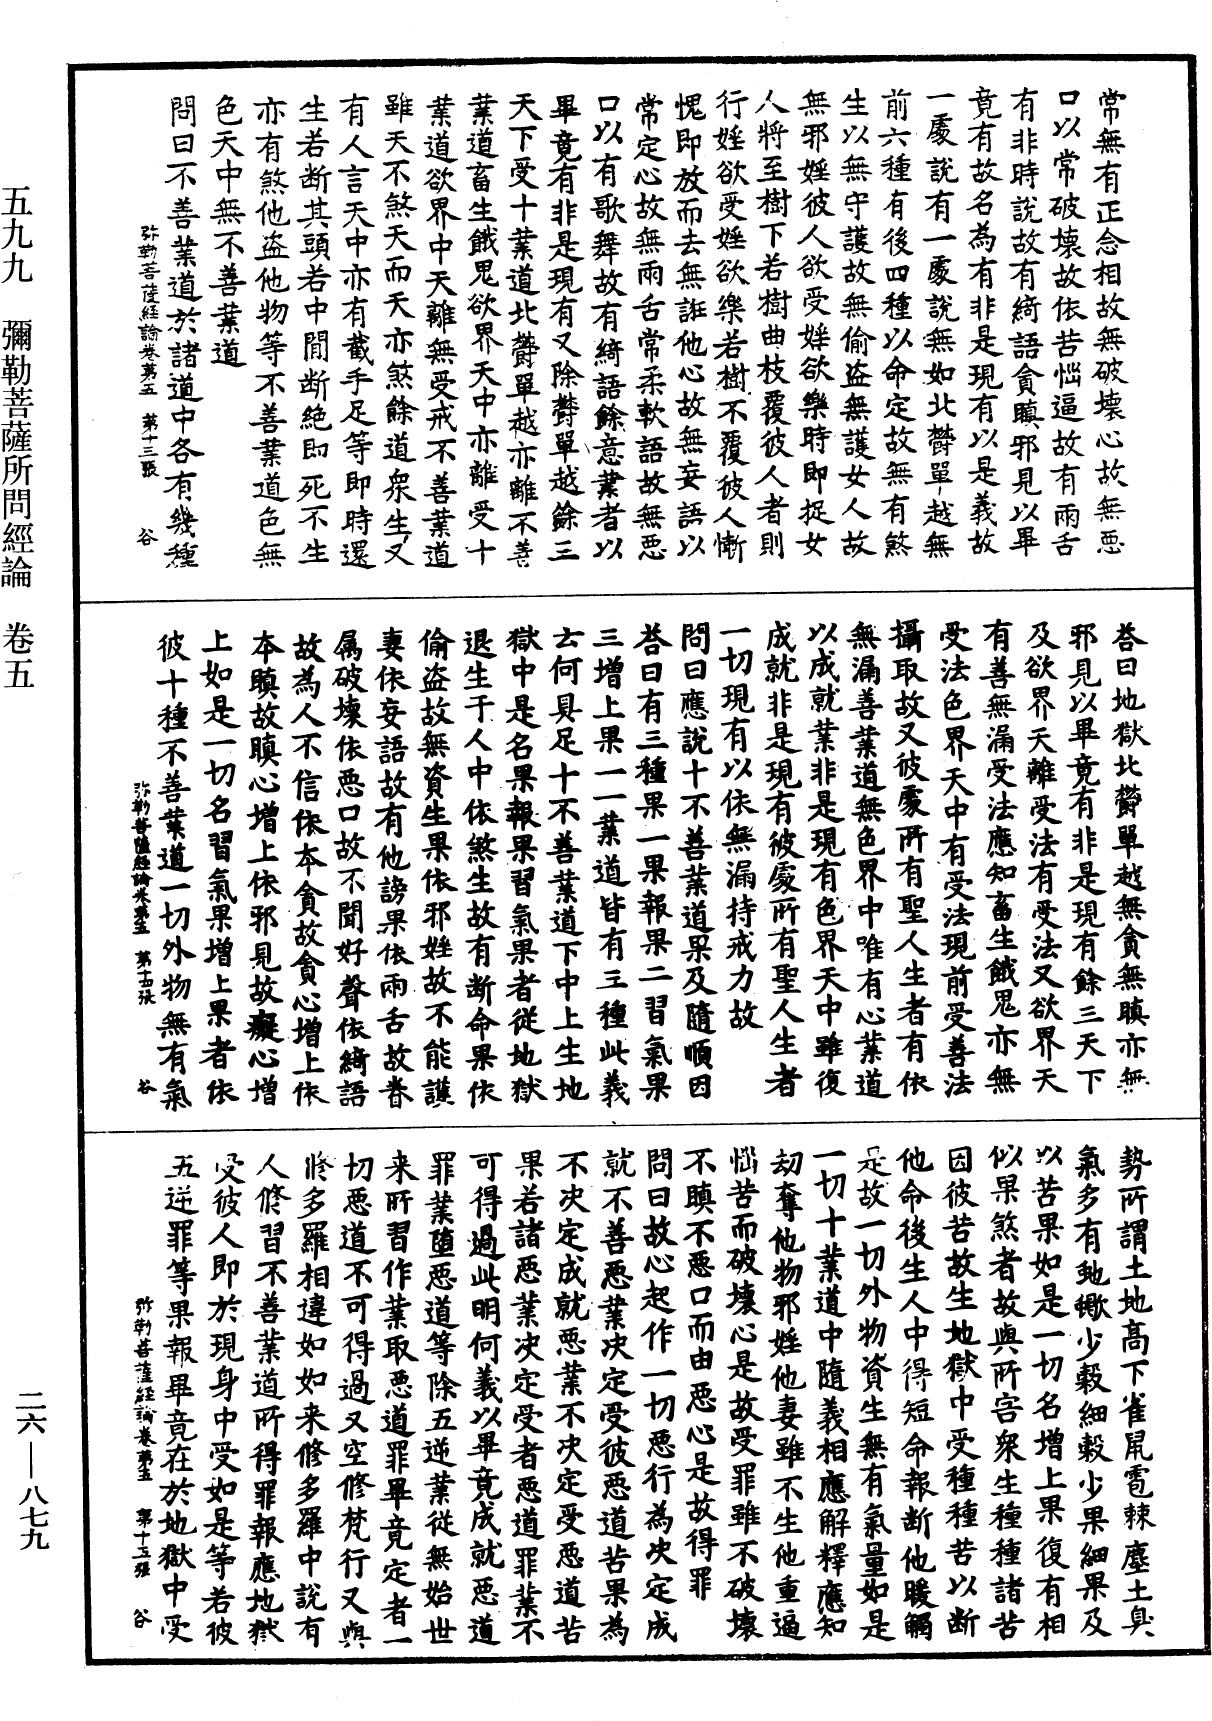 常無有正念相故無破壞心故無惡
口以常破壞故依苦惱逼故有兩舌
有非時說故有綺語貪瞋邪見以畢
竟有故名為有非是現有以是義故
一處說有一處說無如北欝單越無
前六種有後四種以命定故無有煞
生以無守護故無偷盜無護女人故
無邪婬彼人欲受婬欲樂時即捉女
人將至樹下若樹曲枝覆彼人者則
行婬欲受婬欲樂若樹不覆彼人慚
愧即放而去無誑他心故無妄語以
常定心故無兩舌常柔軟語故無惡
口以有歌舞故有綺語餘意業者以
畢竟有非是現有又除欝單越餘三
天下受十業道北欝單越亦離不善
業道畜生餓鬼欲界天中亦離受十
業道欲界中天離無受戒不善業道
雖天不煞天而天亦煞餘道眾生又
有人言天中亦有截手足等即時還
生若斷其頭若中閒斷絕即死不生
亦有煞他盜他物等不善業道色無
色天中無不善業道
問曰不善業道於諸道中各有幾種
弥勒菩薩經論卷第五 第十三張 谷
荅曰地獄北欝單越無貪無瞋亦無
邪見以畢竟有非是現有餘三天下
及欲界天離受法有受法又欲界天
有善無漏受法應知畜生餓鬼亦無
受法色界天中有受法現前受善法
攝取故又彼處所有聖人生者有依
無漏善業道無色界中唯有心業道
以成就業非是現有色界天中雖復
成就非是現有彼處所有聖人生者
一切現有以依無漏持戒力故
問曰應說十不善業道果及隨順因
荅曰有三種果一果報果二習氣果
三增上果一一業道皆有三種此義
云何具足十不善業道下中上生地
獄中是名果報果習氣果者從地獄
退生于人中依煞生故有斷命果依
偷盜故無資生果依邪婬故不能護
妻依妄語故有他謗果依兩舌故眷
屬破壞依惡口故不聞好聲依綺語
故為人不信依本貪故貪心增上依
本瞋故瞋心增上依邪見故癡心增
上如是一切名習氣果增上果者依
彼十種不善業道一切外物無有氣
弥勒菩薩經論卷第五 第十四張 谷
勢所謂土地高下雀鼠雹棘塵土臭
氣多有虵蠍少穀細穀少果細果及
以苦果如是一切名增上果復有相
似果煞者故與所害眾生種種諸苦
因彼苦故生地獄中受種種苦以斷
他命後生人中得短命報斷他暖觸
是故一切外物資生無有氣量如是
一切十業道中隨義相應解釋應知
劫奪他物邪婬他妻雖不生他重逼
惱苦而破壞心是故受罪雖不破壞
不瞋不惡口而由惡心是故得罪
問曰故心起作一切惡行為決定成
就不善惡業決定受彼惡道苦果為
不決定成就惡業不決定受惡道苦
果若諸惡業決定受者惡道罪業不
可得過此明何義以畢竟成就惡道
罪業墮惡道等除五逆業從無始世
来所習作業取惡道罪畢竟定者一
切惡道不可得過又空修梵行又與
修多羅相違如如来修多羅中說有
人修習不善業道所得罪報應地獄
受彼人即於現身中受如是等若彼
五逆罪等果報畢竟在於地獄中受
弥勒菩薩經論卷第五 第十五張 谷
五九九 彌勒菩薩所問經論 卷五
二六—八七九